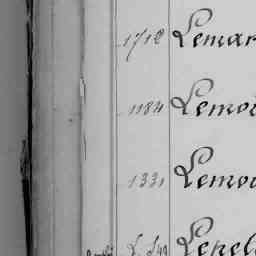 1712 Lemar
1184 Lemoi
1331 Lemou
Lepel